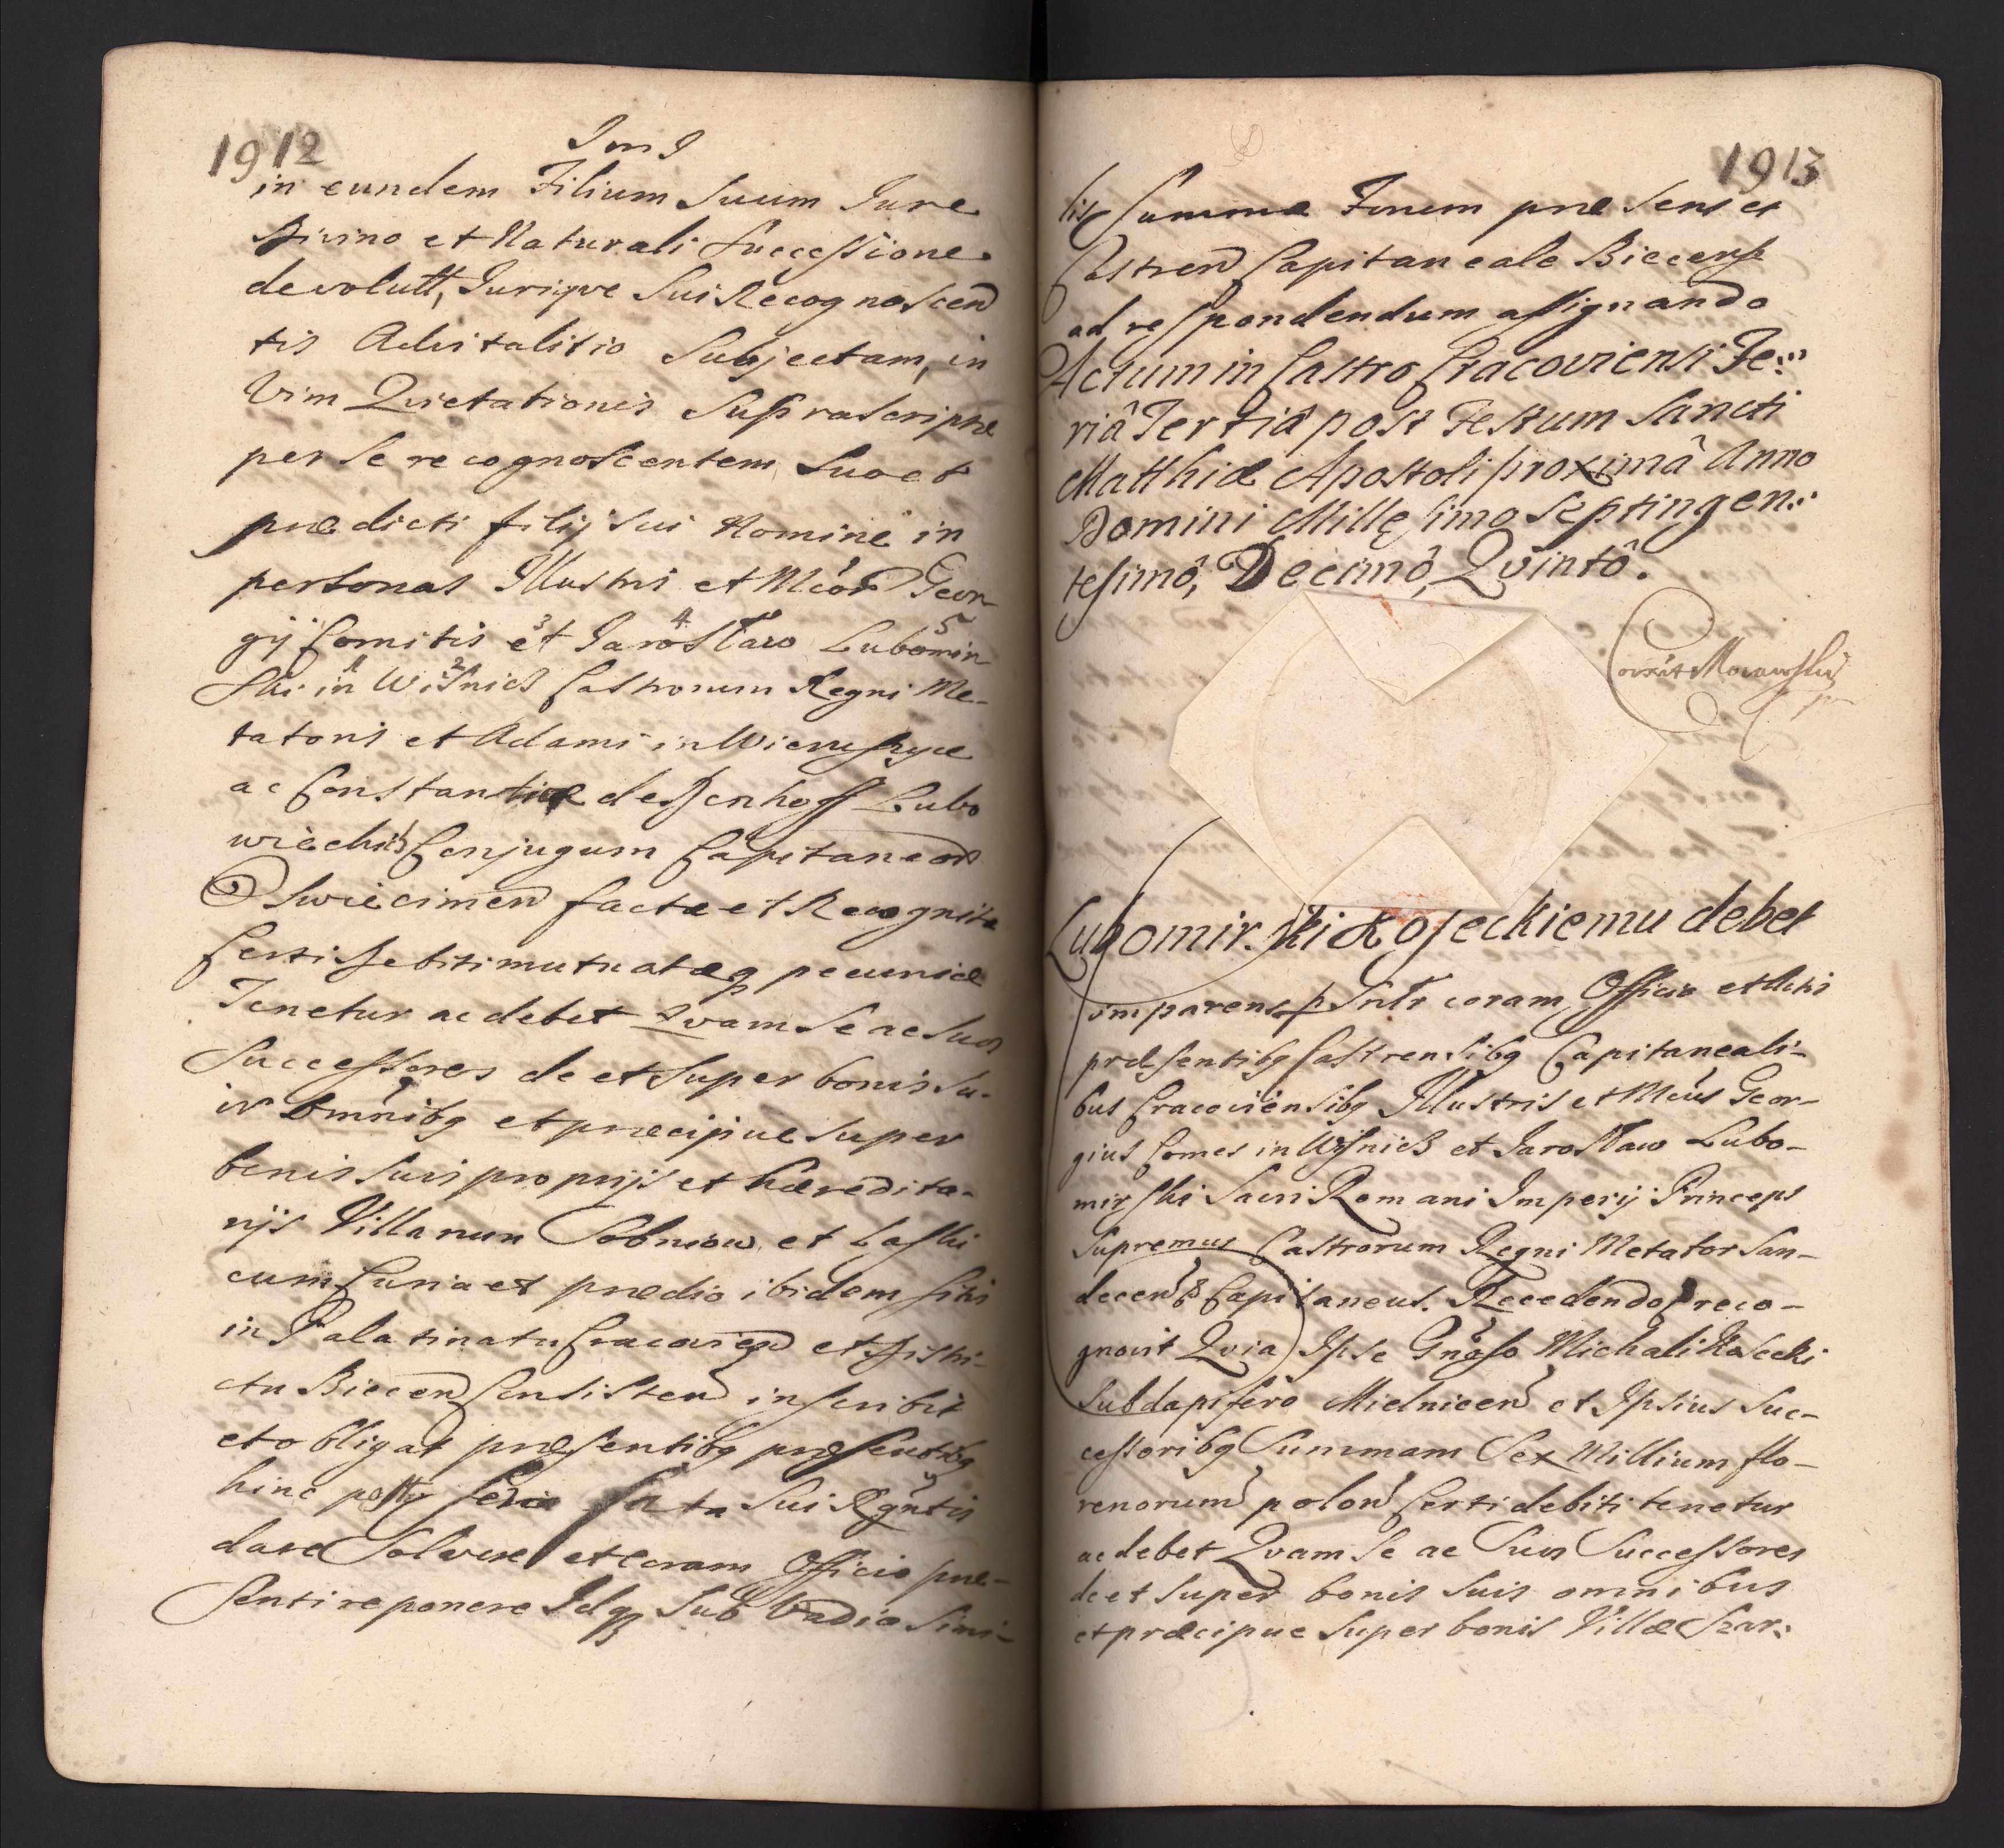 1912
in eundem Filium Suum Jure
Divino et Naturali Successione
devolutt, Jurique Sui Recognoscen
tis Advitalitio Subjectam, in
Vim Quietationis Suprascriptæ
per Se recognoscentem Suo et
prædicti filij Sui Nomine in
personas Illustris et Mcor Geor-
gij Comitis et 3 Jarosław 4 Lubomir- 5
ski in 1 Wiśnicz 2 Castrorum Regni Me-
tatoris et Adami in Wieruszyce
ac Constantiæ de Denhoff Lubo
wieckich Conjugum Capitaneor
Oswiecimen factæ et Recognitæ
Certi Debiti mutuatæq pecuniæ
Tenetur ac debet Qvam Se ac Suos
Successores de et Super bonis Su-
is omnibg et præcipue Super
bonis Suis proprijs et hæredita-
rijs Villarum Sobniow et Laski
cum Curia et prædio ibidem sitis
in Palatinatu Cracovien et Distri-
ctu Biecen Consisten inscribit
et obligat præsentibg præsentibg
hinc Sui Rgntis
dare Solvere et Coram Officio præ-
senti reponere Idq Sub Vadio Simi-
1913
lis Summæ Forum præsens et
Castren Capitaneale Biecense
ad respondendum assignando
Actum in Castro Cracoviensi Fe:
riâ Tertiâ post Festum Sancti
Matthiæ Apostoli proximâ Anno
Domini Millesimo Septingen:
tesimô, Decimô, Qvintô.
Lubomirski Koseckiemu debet
Comparens pSnlr coram Officio et Actis
præsentibg Castrensibg Capitaneali-
bus Cracoviensibg Illustris et Mcus Geor-
gius Comes in Wiśnicz et Jarosław Lubo-
mirski Sacri Romani Imperij Princeps
Supremus Castrorum Regni Metator San-
decen Capitaneus. Recedendo reco-
gnovit Qvia Ipse Gnoso Michali Kosecki
Subdapifero Mielnicen et Ipsius Suc-
cessoribg Summam Sex Millium flo-
renorum polon Certi debiti tenetur
ac debet Qvam Se ac Suos Successores
de et Super bonis Suis omnibus
et præcipue Super bonis Villæ Szar: